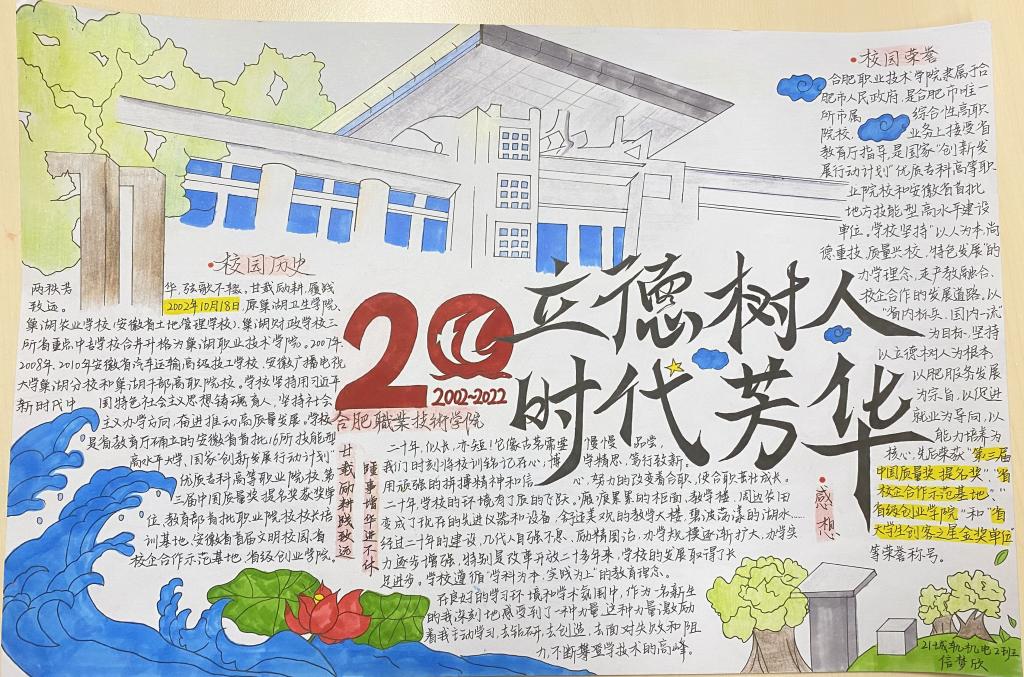 校园荣誉
合肥职业技术学院隶属于合
肥市人民政府,是合肥市唯一
所市属 综合性高职
院校, 业务上接受省
教育厅指导,是国家“创新发
展行动计划”优质专科高等职
业院校和安徽省首批
地方技能型高水平建设
单位。学校坚持“以人为本,尚
德重技,质量兴校,特色发展”的
办学理念,走产教融合、
校企合作的发展道路,以
“省内标兵、国内一流”
为目标,坚持
以立德树人为根本,
以肥服务发展
为宗旨,以促进
就业为导向,以
能力培养为
核心,先后荣获“第三届
中国质量奖提名奖”、“省
校企合作示范基地”、
“省级创业学院”和“省
大学生创客之星金奖单位”
等荣誉称号。
校园历史
两秩芳 华,弦歌不辍,甘载励耕,履践
致远。 2002年10月18日,原巢湖卫生学院、
巢湖农业学校(安徽省土地管理学校)、巢湖财政学校三
所省重点中专学校合并升格为巢湖职业技术学院。2007年、
2008年、2010年安徽省汽车运输高级技工学校、安徽广播电视
大学巢湖分校和巢湖干部高职院校。学校坚持用习近平
新时代中 国特色社会主义思想铸魂育人,坚持社会
主义办学方向,奋进推动高质量发展。学校
是省教育厅确立的安徽省首批16所技能型
高水平大学,国家“创新发展行动计划”
优质专科高等职业院校,第
三届中国质量奖提名奖获奖单
位,教育部首批职业院校校长培
训基地,安徽省首届文明校园,省
校企合作示范基地,省级创业学院。
20
2002-2022
合肥職業技術学院
立德树人
时代芳华
甘载励耕践致远
踵事增华进不休
感想
二十年,似长,亦短!它像古茶需要 慢慢 品尝,
我们时刻将校训铭记在心:博 学精思,笃行致新。
用顽强的拼搏精神和信 心,努力的改变着合职,使合职茁壮成长。
二十年,学校的环境有了质的飞跃。
变成了现在的先进仪器和设备,舒适美观的教学大楼,碧波荡漾的湖水……
经过二十年的建设,几代人自强不息、励精图治,办学规模逐渐扩大,办学实
力逐步增强,特别是改革开放二十多年来,学校的发展取得了长
足进步。学校遵循“学科为本,实践为上”的教育理念。
在良好的学习环境和学术氛围中,作为一名新生
的我深刻地感受到了一种力量,这种力量激励
着我主动学习,去钻研,去创造,去面对失败和阻
力,不断攀登学技术的高峰。
21城轨机电2班
信梦欣